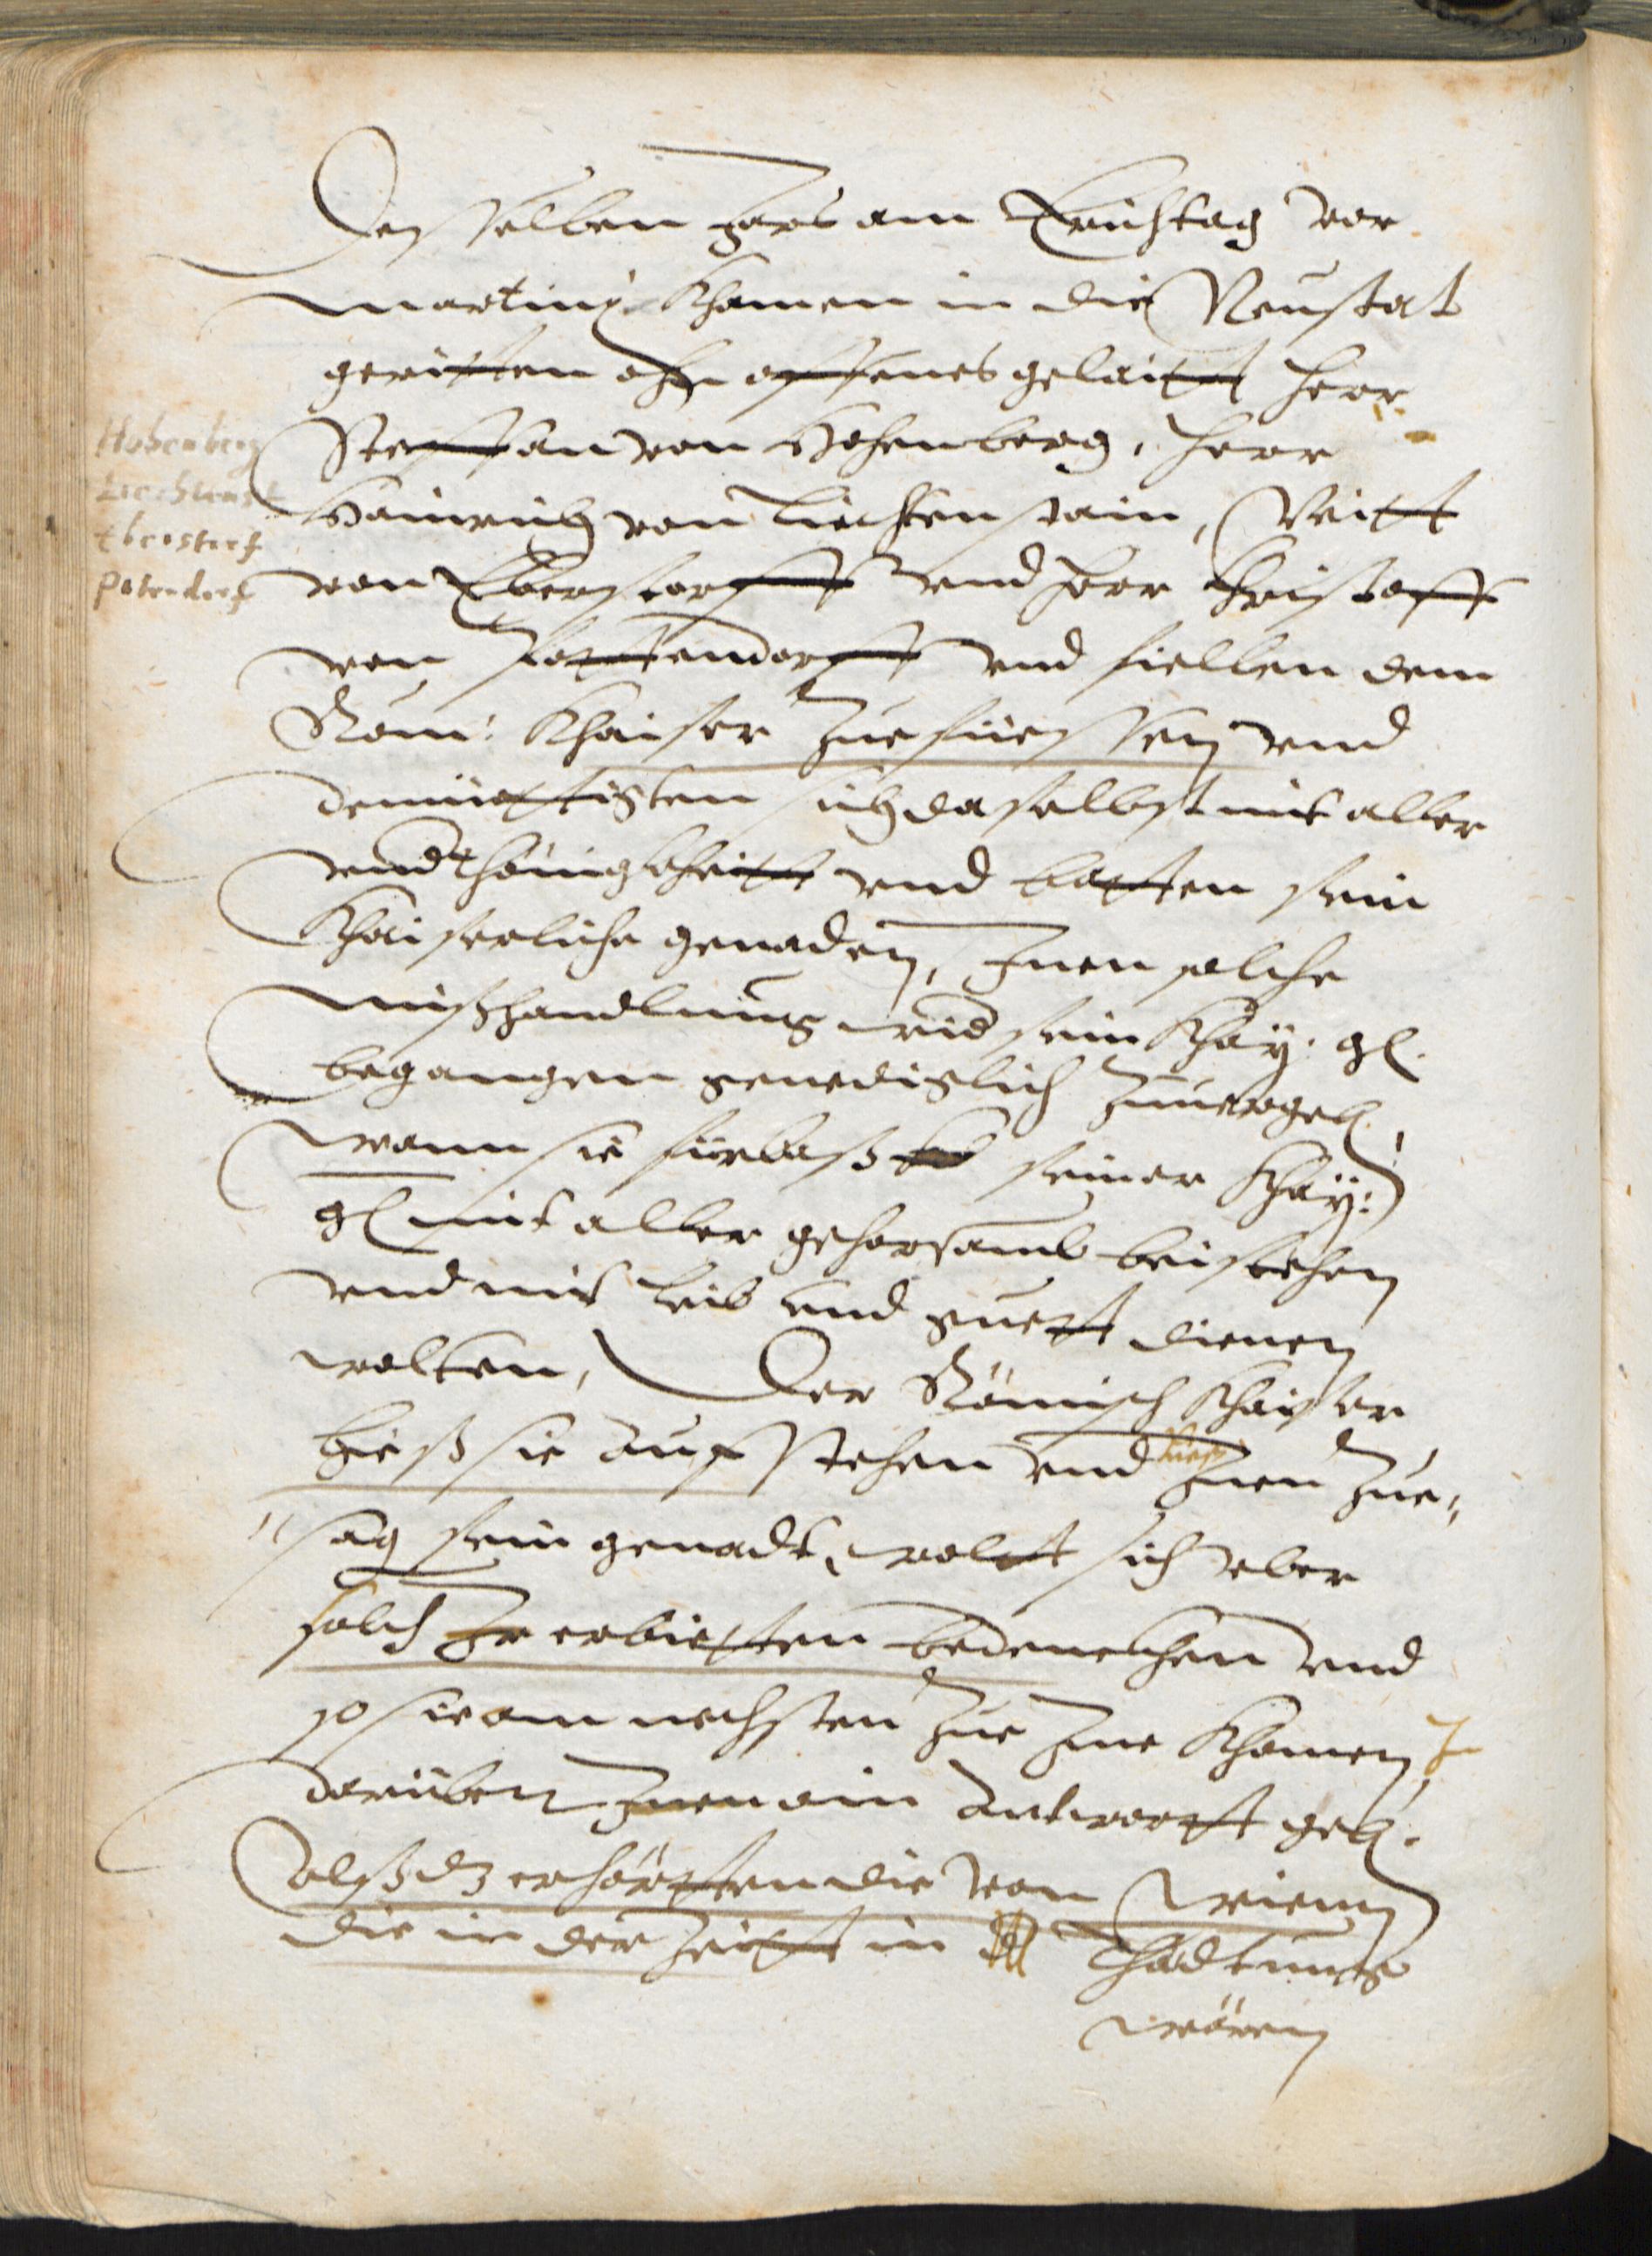 Desselben Jars am Erichtag vor
Martinj Khamen in die Neustat
geritten ohn offenes gelaitt Herr
Steffan von Hohenberg, Herr
Hainrich von Liechtenstain, Veitt
von Eberstorff vnd Herr Christoff
von Pottendorff vnd fiellen dem
Röm: Khaiser zue füessen vnd
demüettigten sich daselbst mit aller
vndthänigkheitt vnd batten sein
Khaiserliche genaden, Jnen solche
mißhandlung wid sein Khay: gl.
begangen genediglich zuuergeb.
wann sie fürbaß seiner Khay:
gl mit aller gehorsamb beistehen
vnd mit leib vnd guett dienen
wolten, Der Römisch Khaiser
hieß sie auf stehen vnd Jnen zue,,
,,sag sein genadt, wolt sich vber
solch Jr erbietten bedenckhen vnd
so sie am nechsten zue Jme Khomen
darüber Jnen ein Antwortt geb.
alß dz erhörtten die von Wienn
die in der Zeitt in Thädtung
wären
Hohenberg
Liechtenst
Eberstorf
Potendorf